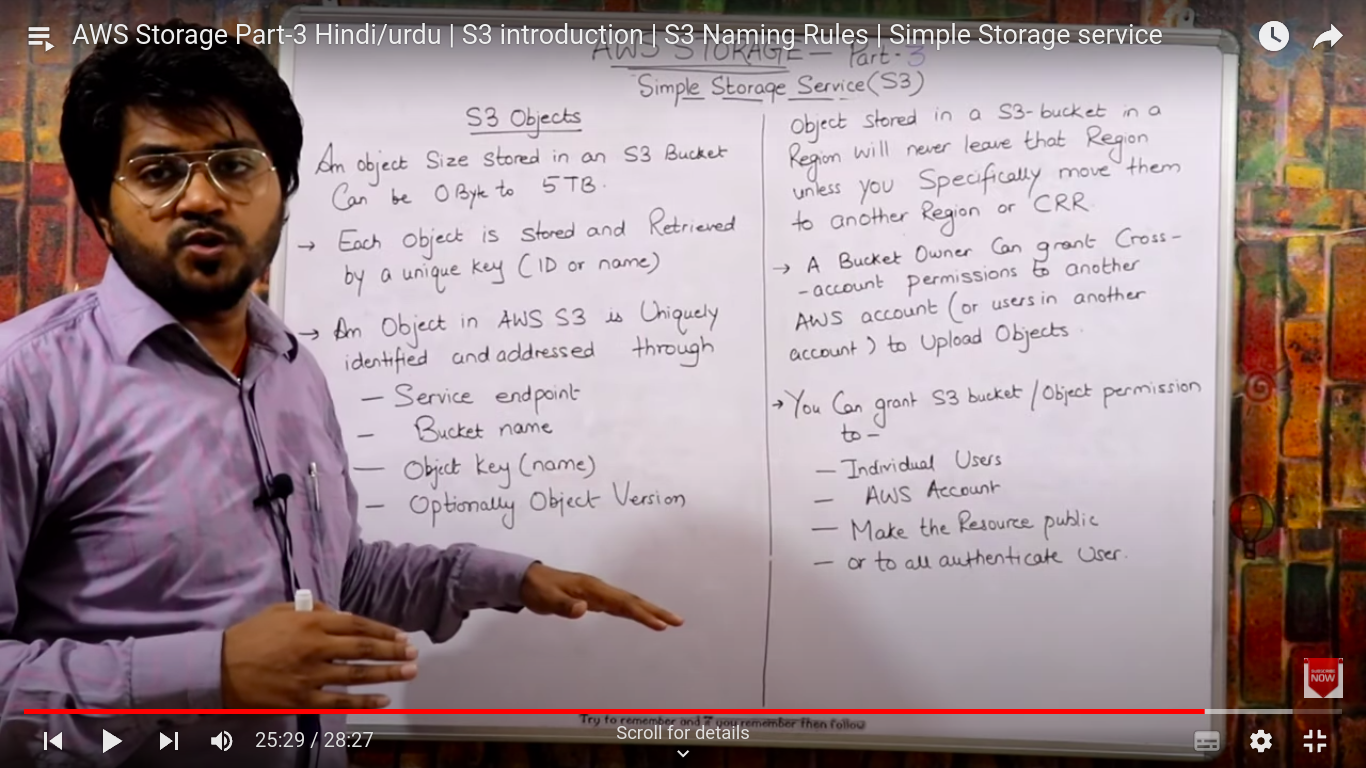 AWS Storage Part-3 Hindi/urdu | S3 introduction | S3 Naming Rules | Simple Storage service
AWS STORAGE - Part-3
Simple Storage Service(S3)
S3 Objects
An object Size stored in an S3 Bucket
Can be 0 Byte to 5TB.
→ Each object is stored and Retrieved
by a unique key (ID or name)
→ An Object in AWS S3 is Uniquely
identified and addressed through
- Service endpoint
- Bucket name
- Object key (name)
- Optionally Object Version
Object stored in a S3-bucket in a
Region will never leave that Region
unless you Specifically move them
to another Region or CRR.
→ A Bucket Owner Can grant Cross-
-account permissions to another
AWS account (or users in another
account) to Upload Objects.
→ You Can grant S3 bucket / Object permission
to -
- Individual Users
- AWS Account
- Make the Resource public
- or to all authenticate User.
SUBSCRIBE
NOW
Try to remember and if you remember then follow
25:29 / 28:27
Scroll for details